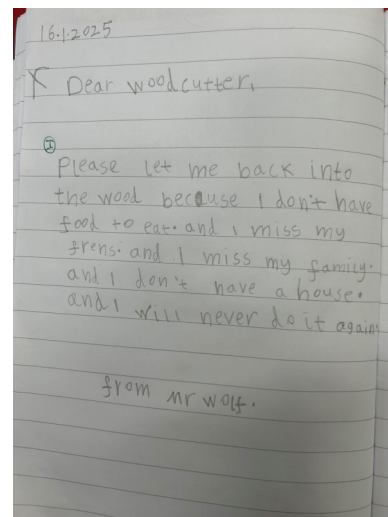 16.1.2025
X Dear woodcutter,
I
Please let me back into
the wood because I don't have
food to eat. and i miss my
frens. and I miss my family.
and I don't have a house.
and I will never do it again.
from mr wolf.